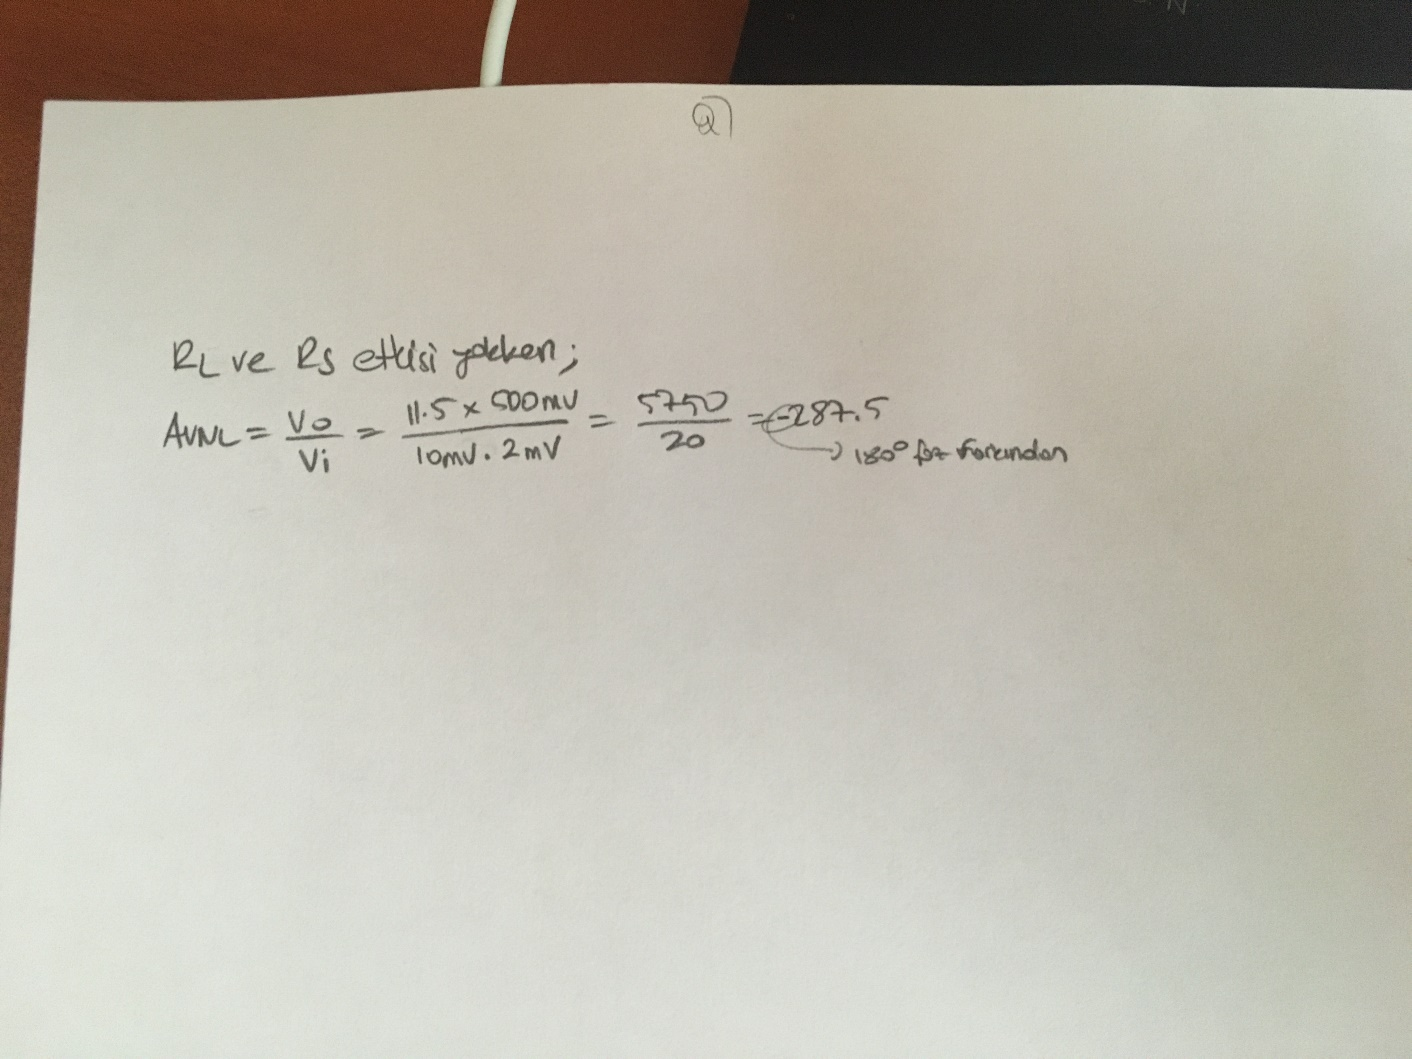 a)
RL ve Rs etkisi yokken;
AVNL = Vo/Vi = 11.5 x 500mV / 10mV. 2mV = 5750/20 = -287.5
→ 180° faz farkından